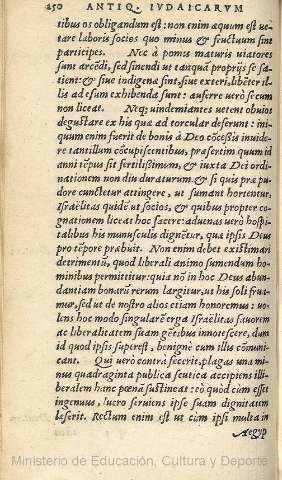 250 ANTIQ. IVDAICARVM
tibus os obligandum est: non enim æquum est ve-
tare laboris socios quo minus & fructuum sint
participes. Nec à pomis maturis viatores
sunt arcēdi, sed sinendi ut tanquā proprijs se sa-
tient: & siue indigena sint, siue exteri, libēter il-
lis ad esum exhibenda sunt: auferre verò secum
non liceat. Neq; vindemiantes vetent obuios
degustare ex his quæ ad torcular deferunt: ini-
quum enim fuerit de bonis à Deo cōcessis inuide-
re tantillum cōcupiscentibus, præsertim quum id
anni tēpus sit fertilissimum, & iuxta Dei ordi-
nationem non diu duraturum. & si quis præ pu-
dore cunctetur attingere, ut sumant hortentur,
Israëlitas quidē ut socios, & quibus propter co-
gnationem liceat hoc facere: aduenas verò hospi-
talibus his munusculis dignētur, quæ ipsis Deus
pro tēpore præbuit. Non enim debet existimari
detrimētū, quod liberali animo sumendum ho-
minibus permittitur: quia nō in hoc Deus abun-
dantiam bonarū rerum largitur, ut his soli frua-
mur, sed ut de nostro alios etiam honoremus: vo-
lens hoc modo singularē erga Israëlitas fauorem
ac liberalitatem suam gētibus innotescere, dum
id quod ipsis superest, benignè cum illis cōmuni-
cant. Qui verò contrà fecerit, plagas una mi-
nus quadraginta publica scutica accipiens illi-
beralem hanc pœnā sustineat: eò quòd cùm esset
ingenuus, lucro seruiens ipse suam dignitatem
læserit. Rectum enim est ut cùm ipsi multa in
Aegyp
Ministerio de Educación, Cultura y Deporte